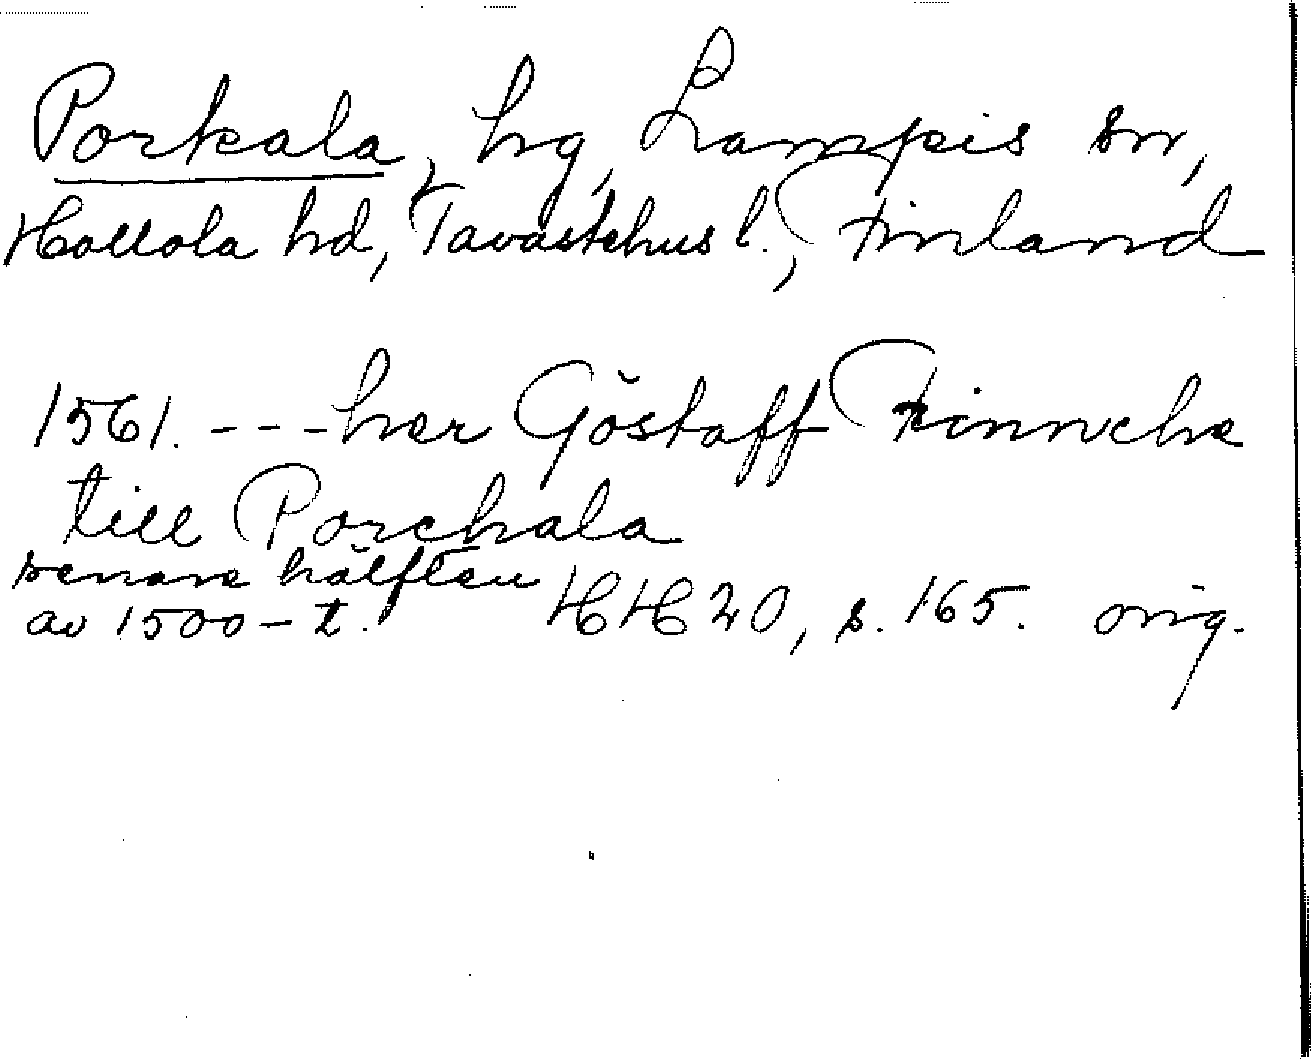 Porkala, hg, Lampis sn,
Hollola hd, Tavastehus l., Finland
1561. --- her Göstaff Finncke
till Porchala
senare hälften
av 1500-t. HH 20, s. 165. orig.